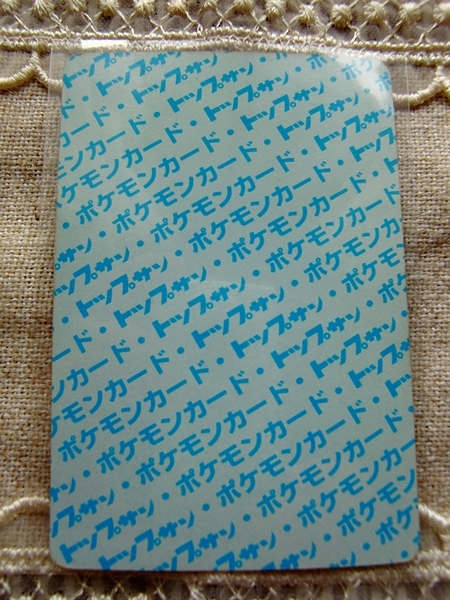 トップサン・
ード・トップサン・
カード・トップサン・ポケ
モンカード・トップサン・ポケモン
ケモンカード・トップサン・ポケモンカ
・ポケモンカード・トップサン・ポ
サン・ポケモンカード・トップサン
トップサン・ポケモンカード・ト
・トップサン・ポケモンカード
ード・トップサン・ポケモンカ
カード・トップサン・ポケモ
モンカード・トップサン・ポケ
ケモンカード・トップサン・
・ポケモンカード・トップサン
サン・ポケモンカード・トップ
トップサン・ポケモンカード・
トップサン・ポケモンカード
トップサン・ポケモン
トップサン・ポ